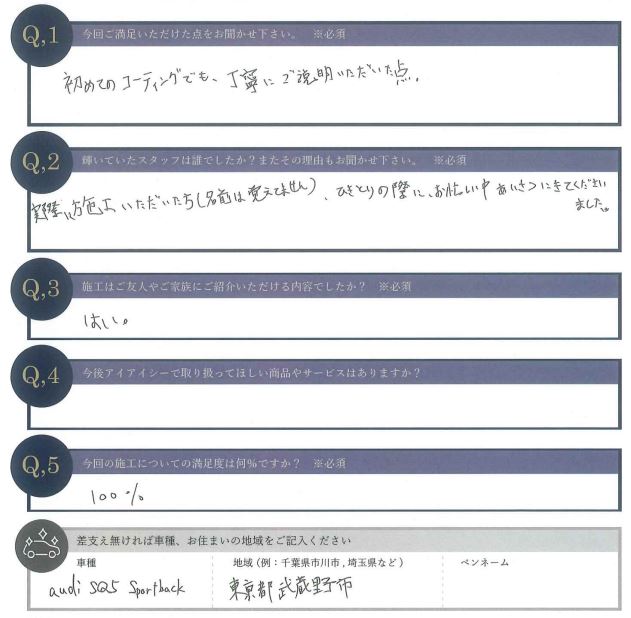 Q,1 今回ご満足いただけた点をお聞かせ下さい。 ※必須
初めてのコーティングでも、丁寧にご説明いただいた点。
Q,2 輝いていたスタッフは誰でしたか？またその理由もお聞かせ下さい。 ※必須
実際に施工いただいた方(名前は覚えてません)、ひきとりの際に、お忙しい中あいさつにきてください
ました。
Q,3 施工はご友人やご家族にご紹介いただける内容でしたか？ ※必須
はい。
Q,4 今後アイアイシーで取り扱ってほしい商品やサービスはありますか？
Q,5 今回の施工についての満足度は何％ですか？ ※必須
100%
差支え無ければ車種、お住まいの地域をご記入ください
車種 地域（例：千葉県市川市，埼玉県など） ペンネーム
audi SQ5 Sportback 東京都武蔵野市